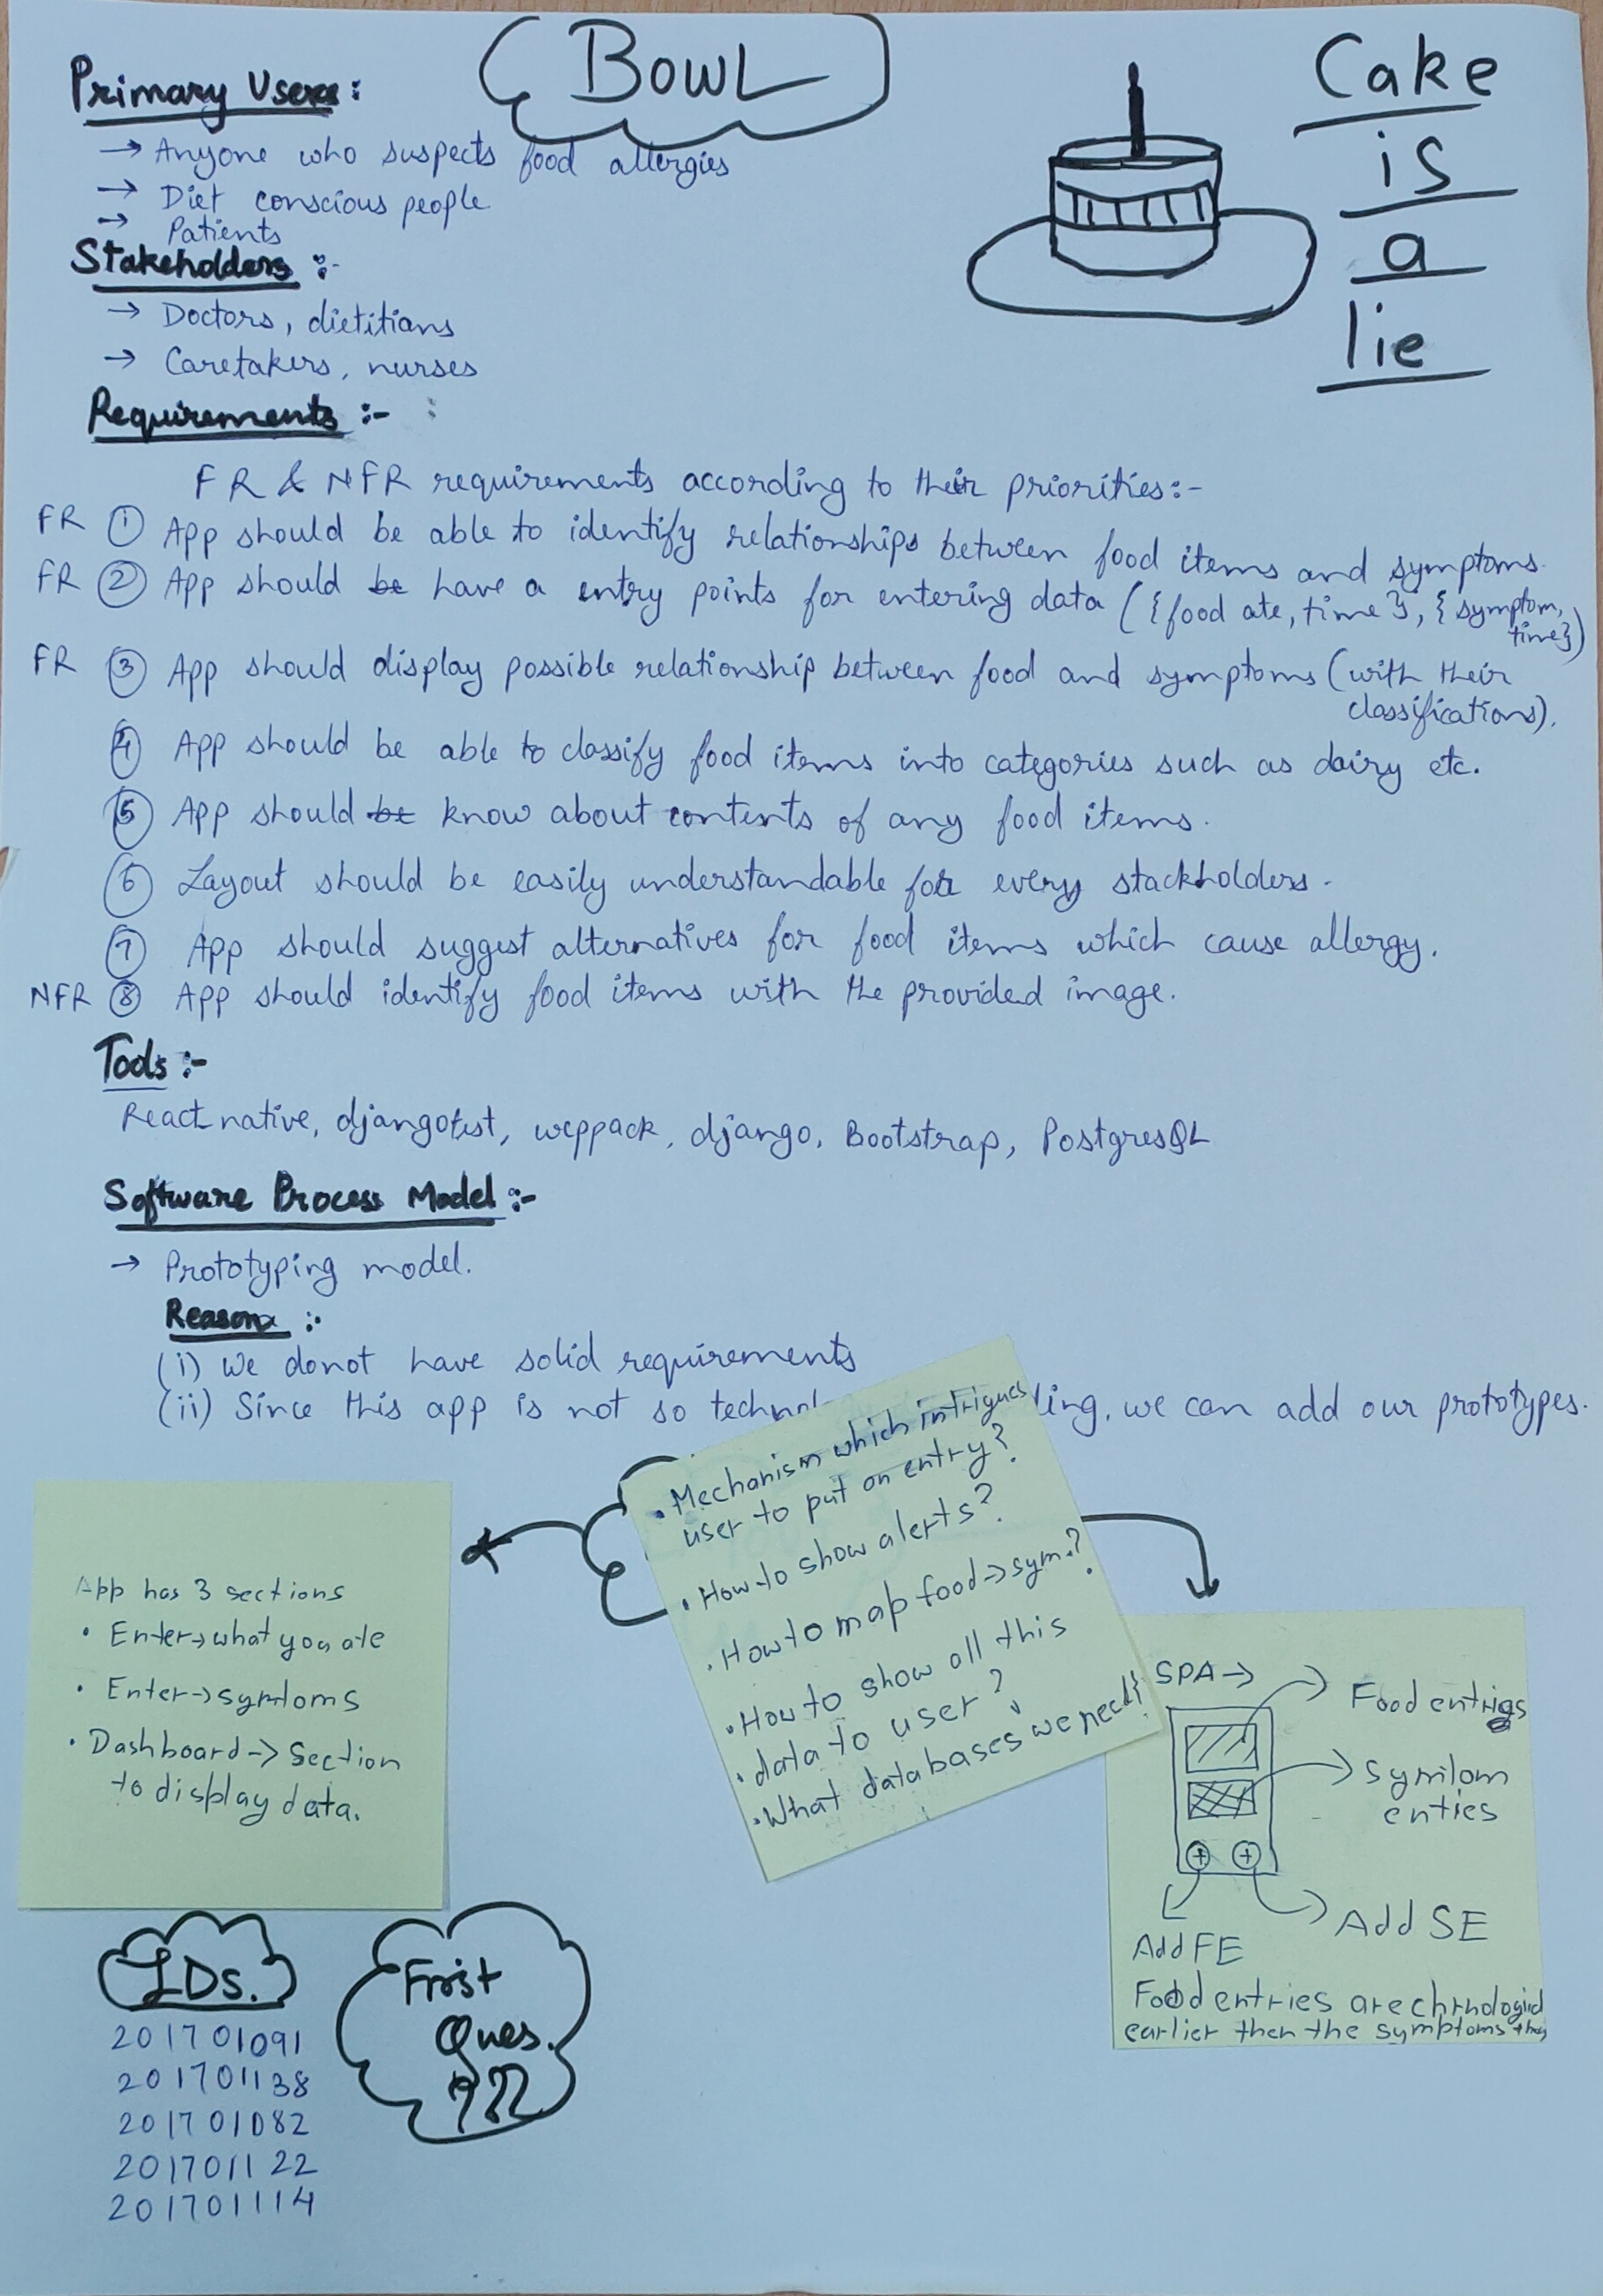 Bowl
Cake
is
a
lie
Primary Users:
→ Anyone who suspects food allergies
→ Diet conscious people
→ Patients
Stakeholders :-
→ Doctors, dietitians
→ Caretakers, nurses
Requirements :-
FR & NFR requirements according to their priorities:-
FR ① App should be able to identify relationships between food items and symptoms.
FR ② App should be have a entry points for entering data ({food ate, time}, {symptom,
time})
FR ③ App should display possible relationship between food and symptoms (with their
classifications).
④ App should be able to classify food items into categories such as dairy etc.
⑤ App should be know about contents of any food items.
⑥ Layout should be easily understandable for every stackholders.
⑦ App should suggest alternatives for food items which cause allergy.
NFR ⑧ App should identify food items with the provided image.
Tools :-
React native, djangorest, weppack, django, Bootstrap, PostgresQL
Software Process Model :-
→ Prototyping model.
Reason :-
(i) We donot have solid requirements
(ii) Since this app is not so technol ling, we can add our prototypes.
• Mechanism which intrigues
user to put an entry?
• How to show alerts?
• How to map food → sym.?
• How to show all this
• data to user?
• What databases we need?
App has 3 sections
• Enter → what you ate
• Enter → symtoms
• Dashboard → Section
to display data.
SPA →
Food entries
Symtom
enties
+ +
Add FE
Add SE
Food entries are
earlier then the symptoms
IDs.
201701091
201701138
201701082
201701122
201701114
Frist
Ques.
???